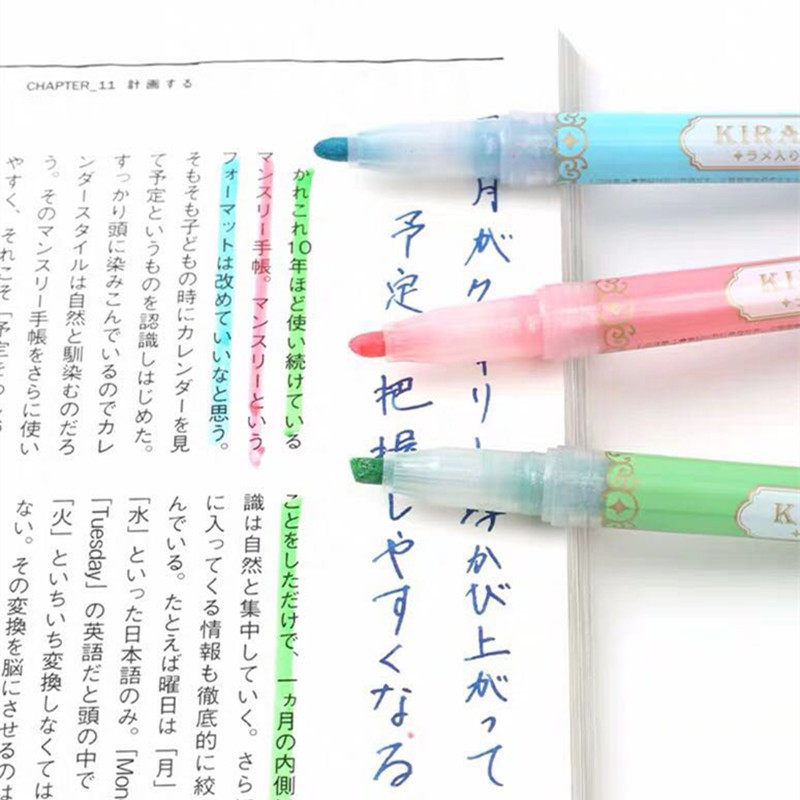 CHAPTER_11 計画する
月がク リー 浮かび上がって
予定 把握しやすくなる
かれこれ10年ほど使い続けている
マンスリー手帳。マンスリーという
フォーマットは改めていいなと思う。
そもそも子どもの時にカレンダーを見
て予定というものを認識しはじめた。
すっかり頭に染みこんでいるのでカレ
ンダースタイルは自然と馴染むのだろ
う。そのマンスリー手帳をさらに使い
やすく、それこそ「予定を
ことをしただけで、一ヵ月の内側
識は自然と集中していく。さら
に入ってくる情報も徹底的に絞
んでいる。たとえば曜日は「月」
「水」といった日本語のみ。「Mon
「Tuesday」の英語だと頭の中で
「火」といちいち変換しなくては
ない。その変換を脳にさせるのは
KIRA
ラメ入の
KI
K